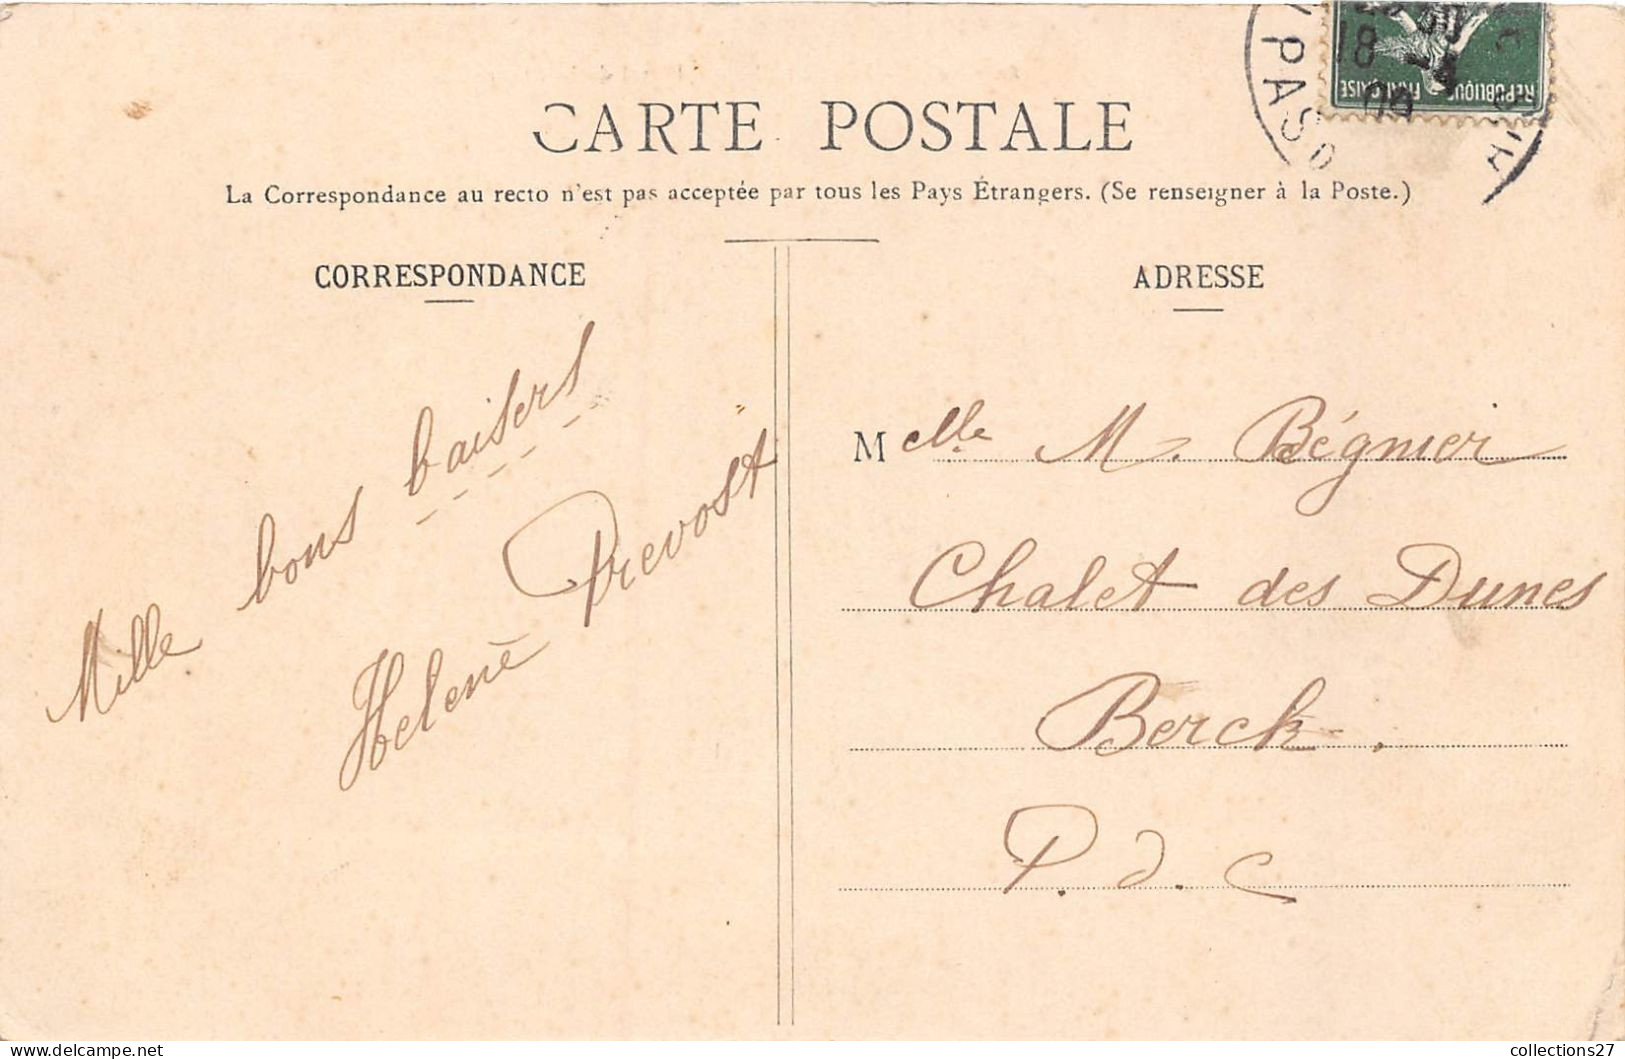 CARTE POSTALE
La Correspondance au recto n'est pas acceptée par tous les Pays Étrangers. (Se renseigner à la Poste.)
CORRESPONDANCE
Mille bons baisers
Helene Prevost
ADRESSE
Melle M. Bégnier
Chalet des Dunes
Berck.
P. d. C
RÉPUBLIQUE FRANÇAISE
PAS D
18
collections27